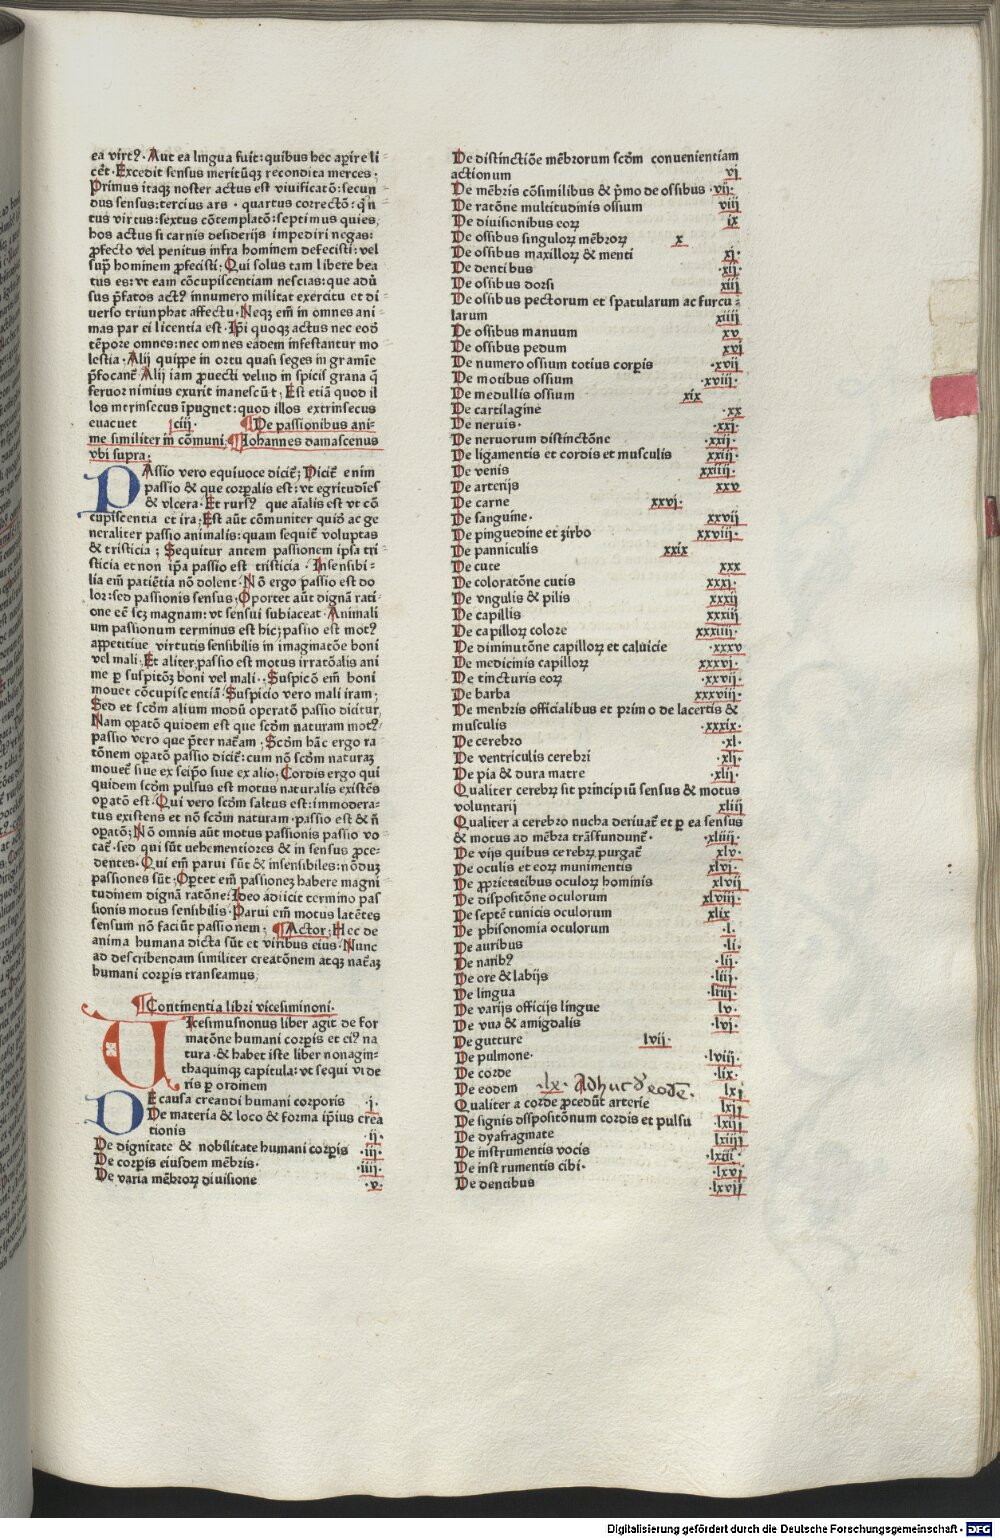 ea virt⁹. Aut ea lingua fuit: quibus hec aꝑire li-
cēt. Excedit sensus meritūqꝫ recondita merces.
Primus itaqꝫ noster actus est viuificatō: secun-
dus sensus: tercius ars. quartus correctō: q̄n
tus virtus: sextus cōtemplatō: septimus quies.
hos actus si carnis desiderijs impediri negas:
ꝓfecto vel penitus infra hominem defecisti: vel
sup̄ hominem ꝓfecisti. Qui solus tam libere bea
tus es: vt eam cōcupiscentiam nescias: que adu᷒
sus p̄fatos act⁹ innumero militat exercitu et di-
uerso triunphat affectu. Neqꝫ em̄ in omnes ani-
mas par ei licentia est. Ip̄i quoqꝫ actus nec eod̄
tēpore omnes: nec omnes eadem infestantur mo
lestia. Alij quippe in ortu quasi seges in gramīe
p̄focant᷑ Alij iam ꝓuecti velud in spicis grana q̄
feruor nimius exurit inanescūt. Est etiā quod il
los intrinsecus īpugnet: quod illos extrinsecus
euacuet ciij. ¶De passionibus ani-
me similiter in cōmuni. ¶Iohannes damascenus
vbi supra.
PAssio vero equiuoce dicit᷑; Dicit᷑ enim
passio & que corꝑalis est: vt egritudīes
& vlcera. Et rurs⁹ que aīalis est vt cō
cupiscentia et ira; Est aūt cōmuniter quid̄ ac ge
neraliter passio animalis: quam sequit᷑ voluptas
& tristicia; Sequitur autem passionem ipsa tri
sticia et non ip̄a passio est tristicia. Insensibi-
lia em̄ patiētia nō dolent. Nō ergo passio est do
lor: sed passionis sensus. Oportet aūt dignā rati-
one eē scꝫ magnam: vt sensui subiaceat. Animali
um passionum terminus est hic; passio est mot⁹
appetitiue virtutis sensibilis in imaginatōe boni
vel mali. Et aliter; passio est motus irratōalis ani
me ꝑ suspitōꝫ boni vel mali. Suspicō em̄ boni
mouet cōcupiscentiā. Suspicio vero mali iram;
Sed et scd̄m alium modū operatō passio dicitur
Nam oꝑatō quidem est que scd̄m naturam mot⁹.
passio vero que p̄ter nat᷑am. Scd̄m hāc ergo ra
tōnem oꝑatō passio dicit᷑: cum nō scd̄m naturaꝫ
mouet᷑ siue ex seip̄o siue ex alio. Cordis ergo qui
quidem scd̄m pulsus est motus naturalis existēs
oꝑatō est. Qui vero scd̄m saltus est: immodera-
tus existens et nō scd̄m naturam. passio est & n̄
oꝑatō; Nō omnis aūt motus passionis passio vo
cat᷑. sed qui sūt vehementiores & in sensus ꝓce-
dentes. Qui em̄ parui sūt & insensibiles: nōduꝫ
passiones sūt. Oꝑtet em̄ passioneꝫ habere magni
tudinem dignā ratōne. Ideo adiicit termino pas
sionis motus sensibilis. Parui em̄ motus latētes
sensum nō faciūt passionem; ¶Actor; Hec de
anima humana dicta sūt et viribus eius. Nunc
ad describendam similiter creatōnem atqꝫ nat᷑aꝫ
humani corꝑis transeamus.
¶Continentia libri vicesiminoni.
VIcesimusnonus liber agit de for
matōne humani corꝑis et ei⁹ na
tura. & habet iste liber nonagin-
thaquinqꝫ capitula: vt sequi vide
ris ꝑ ordinem
DE causa creandi humani corporis .j.
De materia & loco & forma ip̄ius crea
tionis .ij.
De dignitate & nobilitate humani corꝑis .iij.
De corꝑis eiusdem mēbris. .iiij.
De varia mēbroꝝ diuisione .v.
De distinctiōe mēbrorum scd̄m conuenientiam
actionum vj
De mēbris cōsimilibus & p̄mo de ossibus .vij.
De ratōne multitudinis ossium viij
De diuisionibus eoꝝ ix
De ossibus singuloꝝ mēbroꝝ x
De ossibus maxilloꝝ & menti xj.
De dentibus .xij.
De ossibus dorsi xiij
De ossibus pectorum et spatularum ac furcu-
larum xiiij
De ossibus manuum xv
De ossibus pedum xvj
De numero ossium totius corꝑis .xvij
De motibus ossium .xviij.
De medullis ossium xix
De cartilagine .xx
De neruis. .xxj.
De neruorum distinctōne .xxij.
De ligamentis et cordis et musculis xxiij.
De venis xxiiij.
De arterijs xxv
De carne xxvj.
De sanguine. xxvij
De pinguedine et zirbo xxviij.
De panniculis xxix
De cute xxx
De coloratōne cutis xxxj.
De vngulis & pilis xxxij
De capillis xxxiij
De capilloꝝ colore xxxiiij.
De diminutōne capilloꝝ et caluicie .xxxv
De medicinis capilloꝝ xxxvj.
De tincturis eoꝝ .xxvij.
De barba xxxviij.
De menbris officialibus et primo de lacertis &
musculis .xxxix.
De cerebro .xl.
De ventriculis cerebri .xlj.
De pia & dura matre .xlij.
Qualiter cerebꝝ sit principiū sensus & motus
voluntarij xliij
Qualiter a cerebro nucha deriuat᷑ et ꝑ ea sensus
& motus ad mēbra trāsfundunt᷑. .xliiij.
De vijs quibus cerebꝝ purgat᷑ xlv.
De oculis et eoꝝ munimentis xlvj.
De ꝓprietatibus oculoꝝ hominis xlvij
De dispositōne oculorum xlviij.
De septē tunicis oculorum xlix
De phisonomia oculorum .l.
De auribus .lj.
De narib⁹ .lij.
De ore & labijs .liij.
De lingua .liiij.
De varijs officijs lingue lv.
De vua & amigdalis .lvj.
De gutture lvij.
De pulmone. .lviij.
De corde .lix.
De eodem .lx. Adhuc d᷑ eodē. lxj
Qualiter a corde ꝓcedūt arterie lxij
De signis dispositōnum cordis et pulsu .lxiij
De dyafragmate lxiiij
De instrumentis vocis
De instrumentis cibi. .lxvj
De dentibus .lxvij